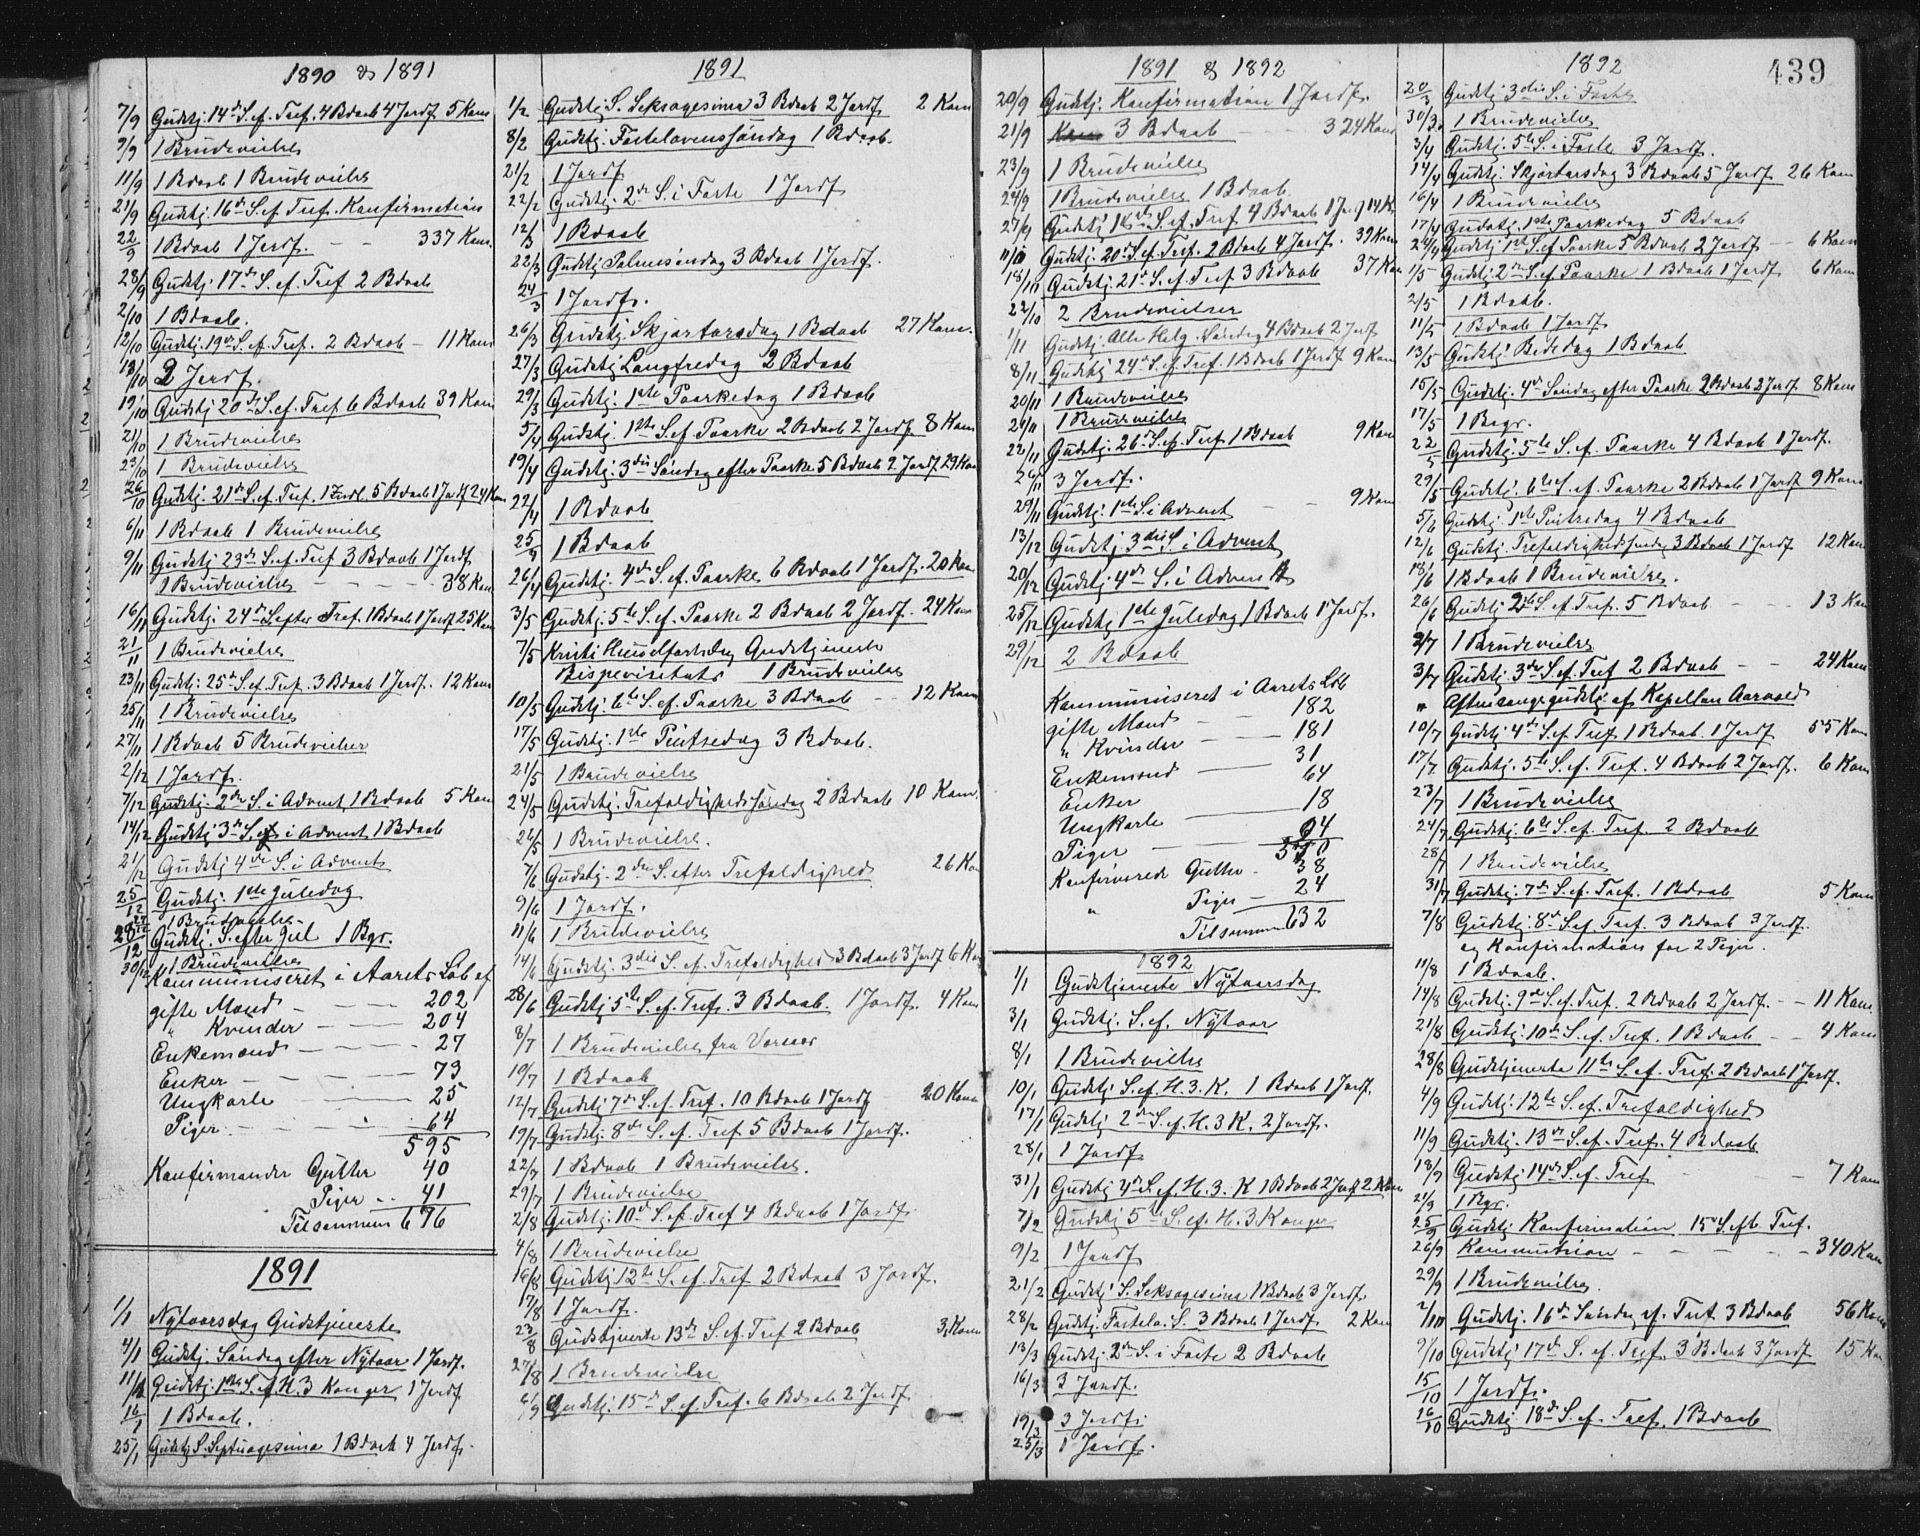 1890 & 1891
7/9 Gudstj. 14de S. ef. Tref. 4 Bdaab 4 Jordf. 5 Kom
9/9 1 Brudevielse
11/9 1 Bdaab 1 Brudevielse
21/9 Gudstj. 16de S. ef. Tref. Konfirmation
22/9 1 Bdaab 1 Jordf. - - 337 Kom.
28/9 Gudstj. 17de S. ef. Tref 2 Bdaab
2/10 1 Bdaab.
12/10 Gudstj. 19de S. ef. Tref. 2 Bdaab - 11 Kom
13/10 2 Jordf.
19/10 Gudstj 20de S. ef. Tref 6 Bdaab 39 Kom
21/10 1 Brudevielse
23/10 1 Brudevielse
26/10 Gudstj. 21de S. ef. Tref. 5 Bdaab 1 Jordf 24 Kom
6/11 1 Bdaab 1 Brudevielse
9/11 Gudstj 23de S. ef. Tref 3 Bdaab 1 Jordf
1 Brudevielse - - - - 38 Kom
16/11 Gudstj. 24de S. efter Tref. 1 Bdaab 1 Jordf 25 Kom
21/11 1 Brudevielse
23/11 Gudstj. 25de S. ef. Tref. 3 Bdaab 1 Jordf. 12 Kom
25/11 1 Brudevielse
27/11 1 Bdaab 5 Brudevielser
2/12 1 Jordf.
7/12 Gudstj. 2den S. i Advent 1 Bdaab 5 Kom
14/12 Gudstj 3die S. i Advent 1 Bdaab
21/12 Gudstj 4de S. i Advent
25/12 Gudstj. 1ste Juledag
27/12 1 Brudevielse
28/12 Gudstj. S. efter Jul 1 Bgr.
30/12 1 Brudevielse
Kommuniseret i Aarets Løb af
gifte Mænd - - 202
" Kvinder - - 204
Enkemænd - - - 27
Enker - - - 73
Ungkarle - - - 25
Piger - - - 64
595
Konfirmander Gutter 40
Piger .. 41
Tilsammen 676
1891
1/1 Nytaarsdag Gudstjeneste
4/1 Gudstj. Søndag efter Nytaar 1 Jordf.
11/1 Gudstj. 1ste S. ef. H. 3 Konger 1 Jordf
16/1 1 Bdaab.
25/1 Gudstj S. Septuagesima 1 Bdaab 4 Jordf.
1891
1/2 Gudstj. S. Seksagesima 3 Bdaab 2 Jordf 2 Kom
8/2 Gudstj. Fastelavenssøndag 1 Bdaab.
21/2 1 Jordf
22/2 Gudstj. 2den S. i Faste 1 Jordf
12/3 1 Bdaab
22/3 Gudstj Palmesøndag 3 Bdaab 1 Jordf.
24/3 1 Jordf.
26/3 Gudstj. Skjærtorsdag 1 Bdaab 27 Kom.
27/3 Gudstj Langfredag 2 Bdaab
29/3 Gudstj. 1ste Paaskedag 1 Bdaab
5/4 Gudstj. 1ste S. ef. Paaske 2 Bdaab 2 Jordf 8 Kom
19/4 Gudstj. 3die Søndag efter Paaske 5 Bdaab 2 Jordf 29 Kom
22/4 1 Bdaab
25/4 1 Bdaab
26/4 Gudstj. 4de S. ef. Paaske 6 Bdaab 1 Jordf. 20 Kom
3/5 Gudstj. 5te S. ef. Paaske 2 Bdaab 2 Jordf. 24 Kom
7/5 Kristi Himmelfartsdag Gudstjeneste
Bispevisitats 1 Brudevielse
10/5 Gudstj. 6te S. ef. Paaske 3 Bdaab - 12 Kom
17/5 Gudstj. 1ste Pintsedag 3 Bdaab.
21/5 1 Brudevielse
24/5 Gudstj. Trefoldighedssøndag 2 Bdaab 10 Kom.
26/5 1 Brudevielse.
7/6 Gudstj. 2den S. efter Trefoldighed 26 Kom
9/6 1 Jordf.
11/6 1 Brudevielse
14/6 Gudstj. 3die S. ef. Trefoldighed 3 Bdaab 3 Jordf 6 Kom
28/6 Gudstj 5te S. ef. Tref. 3 Bdaab. 1 Jordf. 4 Kom
8/7 1 Brudevielse fra
19/7 1 Bdaab
12/7 Gudstj 7de S. ef. Tref. 10 Bdaab 1 Jordf - 20 Kom
19/7 Gudstj. 8de S. ef. Tref 5 Bdaab 1 Jordf.
22/7 1 Bdaab 1 Brudevielse.
29/7 1 Brudevielse
2/8 Gudstj. 10de S. ef. Tref 4 Bdaab 1 Jordf.
4/8 1 Brudevielse
16/8 Gudstj 12te S. ef. Tref 2 Bdaab 3 Jordf.
17/8 1 Jordf.
23/8 Gudstjeneste 13de S. ef. Tref 2 Bdaab 3 Kom
27/8 1 Brudevielse
6/9 Gudstj. 15de S. ef. Tref. 6 Bdaab 2 Jordf.
1891 & 1892
20/9 Gudstj. Konfirmation 1 Jordf.
21/9 3 Bdaab - - 324 Kom
23/9 1 Brudevielse
24/9 1 Brudevielse 1 Bdaab.
27/9 Gudstj 18de S. ef. Tref 4 Bdaab 1 Jordf 14 Kom
11/10 Gudstj. 20de S. ef. Tref. 2 Bdaab 4 Jordf. 39 Kom
18/10 Gudstj. 21de S. ef. Tref 3 Bdaab 37 Kom
22/10 2 Brudevielser
1/11 Gudstj. Alle Helg. Søndag 4 Bdaab 2 Jordf
8/11 Gudstj 24de S. ef. Tref. 1 Bdaab 1 Jordf 9 Kom
20/11 1 Brudevielse
21/11 1 Brudevielse
22/11 Gudstj. 26de S. ef. Tref. 1 Bdaab 9 Kom
26/11 3 Jordf.
29/11 Gudstj. 1ste S. i Advent - 9 Kom
13/12 Gudstj 3die S. i Advent
20/12 Gudstj. 4de S. i Advent
25/12 Gudstj 1ste Juledag 1 Bdaab 1 Jordf.
29/12 2 Bdaab
Kommuniseret i Aarets Løb
gifte Mænd - - 182
" Kvinder - - 181
Enkemænd - 31
Enker 64
Ungkarle - 18
Piger - 94
570
Konfirmerede Gutter - 38
" Piger - 24
Tilsammen 632
1892
1/1 Gudstjeneste Nytaarsdag
3/1 Gudstj. S. ef. Nytaar
8/1 1 Brudevielse
10/1 Gudstj S. ef. H. 3. K. 1 Bdaab 1 Jordf.
17/1 Gudstj 2den S. ef. H. 3 K. 2 Jordf.
28/1 1 Jordf
31/1 Gudstj 4de S. ef. H. 3. K 1 Bdaab 2 Jordf 2 Kom
7/2 Gudstj 5te S. ef. H. 3 Konger
9/2 1 Jordf
21/2 Gudstj S. Seksagesima 1 Bdaab 3 Jordf.
28/2 Gudstj. Fastela. S. 3 Bdaab 1 Jordf 2 Kom
13/3 Gudstj. 2den S. i Faste 2 Bdaab
16/3 3 Jordf.
19/3 3 Jordf.
25/3 1 Jordf.
1892
439
20/3 Gudstj 3die S. i Faste
30/3 1 Brudevielse
3/4 Gudstj. 5te S. i Faste 3 Jordf.
14/4 Gudstj. Skjærtorsdag 3 Bdaab 5 Jordf 26 Kom
16/4 1 Brudevielse
17/4 Gudstj. 1ste Paaskedag 5 Bdaab
24/4 Gudstj 1ste S. ef Paaske 5 Bdaab 2 Jordf - 6 Kom
1/5 Gudstj. 2den S. ef Paaske 1 Bdaab 1 Jordf 6 Kom
2/5 1 Bdaab.
11/5 1 Bdaab 1 Jordf
13/5 Gudstj. Bededag 1 Bdaab
15/5 Gudstj. 4de Søndag efter Paaske 2 Bdaab 2 Jordf 8 Kom
17/5 1 Begr.
22/5 Gudstj. 5te S. ef. Paaske 4 Bdaab 1 Jordf.
29/5 Gudstj. 6te S. ef. Paaske 2 Bdaab 1 Jordf 9 Kom
5/6 Gudstj. 1ste Pintsedag 4 Bdaab
12/6 Gudstj. Trefoldighedssøndag 3 Bdaab 1 Jordf 12 Kom
18/6 1 Bdaab 1 Brudevielse.
26/6 Gudstj 2den S. ef Tref. 5 Bdaab - - - 13 Kom
2/7 1 Brudevielse
3/7 Gudstj 3die S. ef. Tref 2 Bdaab - - 24 Kom
" Aftensangsgudstj. af Kapellan Aarvold
10/7 Gudstj 4de S. ef. Tref 1 Bdaab. 1 Jordf 55 Kom
17/7 Gudstj. 5te S. ef. Tref. 4 Bdaab 2 Jordf. 6 Kom
23/7 1 Brudevielse
24/7 Gudstj. 6te S. ef. Tref. 2 Bdaab
28/7 1 Brudevielse
31/7 Gudstj. 7de S. ef. Tref. 1 Bdaab 5 Kom
7/8 Gudstj. 8de S. ef Tref. 3 Bdaab 3 Jordf.
og Konfirmation for 2 Piger.
11/8 1 Bdaab.
14/8 Gudstj. 9de S. ef. Tref. 2 Bdaab 2 Jordf. - - 11 Kom
21/8 Gudstj. 10de S. ef. Tref. 1 Bdaab - - 4 Kom
28/8 Gudstjeneste 11te S. ef. Tref. 2 Bdaab 1 Jordf.
4/9 Gudstj. 12te S. ef. Trefoldighed
11/9 Gudstj. 13de S. ef. Tref. 4 Bdaab
18/9 Gudstj 14de S. ef. Tref - - 7 Kom
21/9 1 Bgr.
25/9 Gudstj Konfirmation 15de S. eft. Tref.
26/9 Kommunion - - - - 340 Kom
29/9 1 Brudevielse.
2/10 Gudstj. 16de Søndag ef. Tref 3 Bdaab 56 Kom
9/10 Gudstj 17de S. ef. Tref. 3 Bdaab 3 Jordf 15 Kom
15/10 1 Jordf.
16/10 Gudstj 18de S. ef. Tref. 1 Bdaab